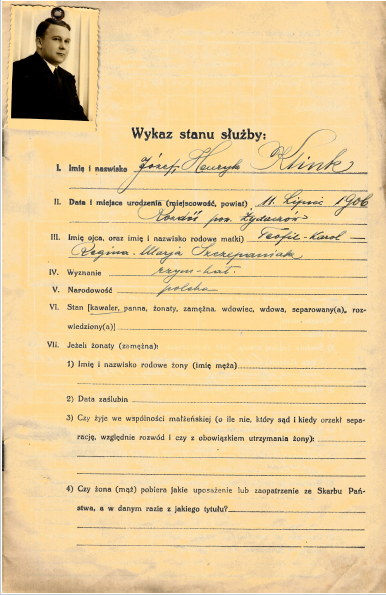 Wykaz stanu służby:
I. Imię i nazwisko Józef, Henryk Klink
II. Data i miejsce urodzenia (miejscowość, powiat) 11. Lipiec 1906
Rozdół pow. Żydaczów
III. Imię ojca, oraz imię i nazwisko rodowe matki) Teofil-Karol —
Regina-Marja Szczepaniak
IV. Wyznanie rzym-kat.
V. Narodowość polska
VI. Stan [kawaler, panna, żonaty, zamężna, wdowiec, wdowa, separowany(a), roz-
wiedziony(a)]
VII. Jeżeli żonaty (zamężna):
1) Imię i nazwisko rodowe żony (imię męża)
2) Data zaślubin
3) Czy żyje we wspólności małżeńskiej (o ile nie, który sąd i kiedy orzekł sepa-
rację, względnie rozwód i czy z obowiązkiem utrzymania żony):
4) Czy żona (mąż) pobiera jakie uposażenie lub zaopatrzenie ze Skarbu Pań-
stwa, a w danym razie z jakiego tytułu?